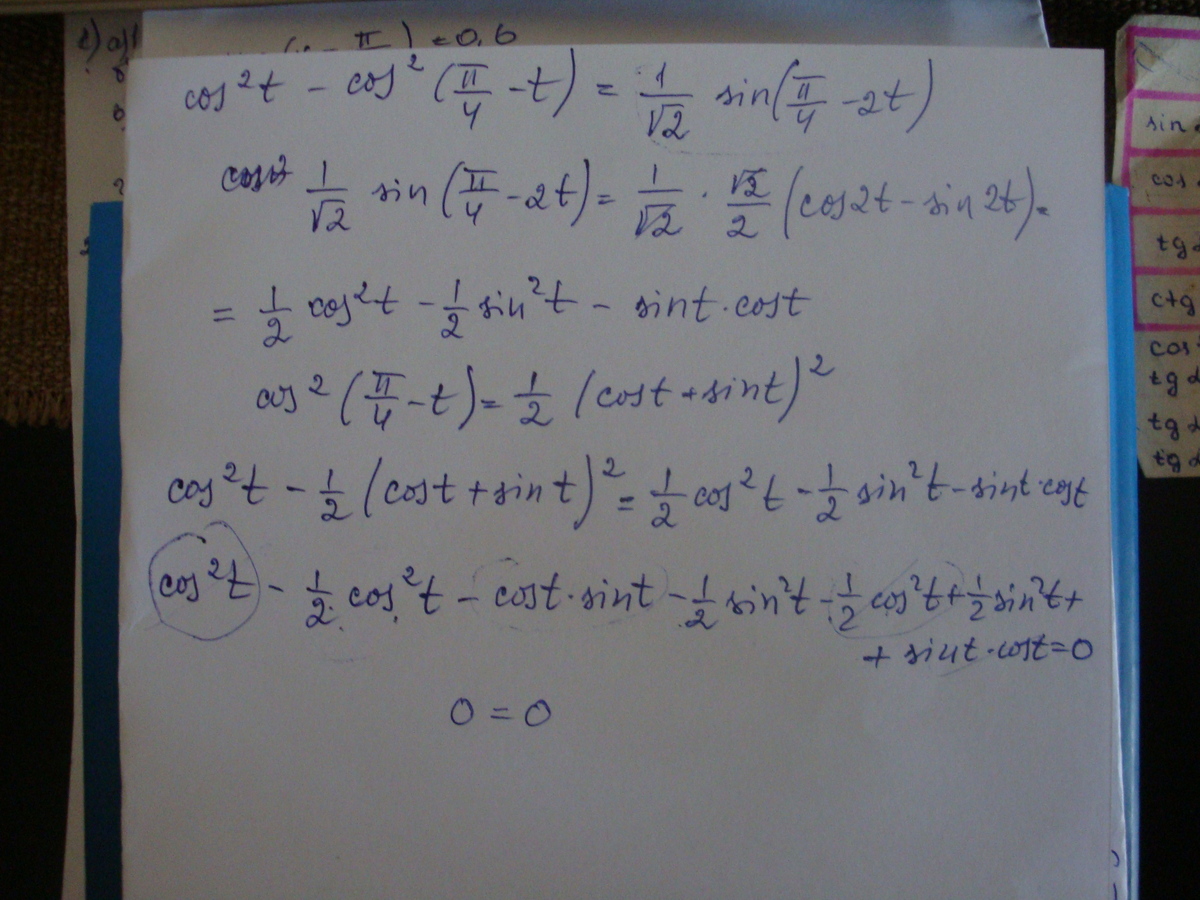 cos²t - cos²(π/4 - t) = 1/√2 sin(π/4 - 2t)
1/√2 sin(π/4 - 2t) = 1/√2 · √2/2 (cos2t - sin2t) =
= 1/2 cos²t - 1/2 sin²t - sint · cost
cos²(π/4 - t) = 1/2 (cost + sint)²
cos²t - 1/2 (cost + sint)² = 1/2 cos²t - 1/2 sin²t - sint · cost
cos²t - 1/2 cos²t - cost · sint - 1/2 sin²t - 1/2 cos²t + 1/2 sin²t +
+ sint · cost = 0
0 = 0
π ) = 0,6
sin
cos
tg
ctg
cos
tg
tg
tg